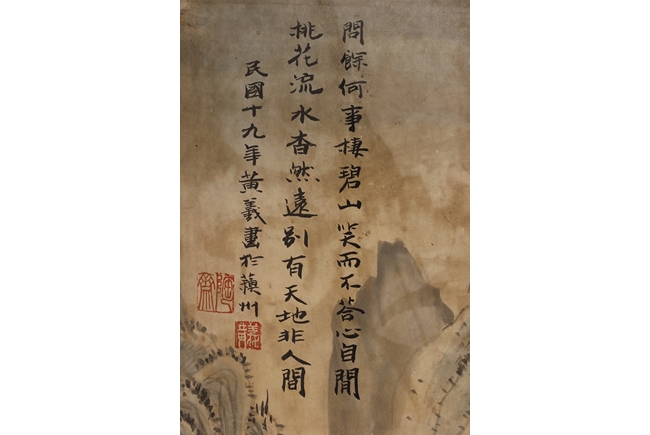 問餘何事棲碧山笑而不答心自閒
桃花流水杳然遠別有天地非人間
民國十九年黃羲畫於蘇州